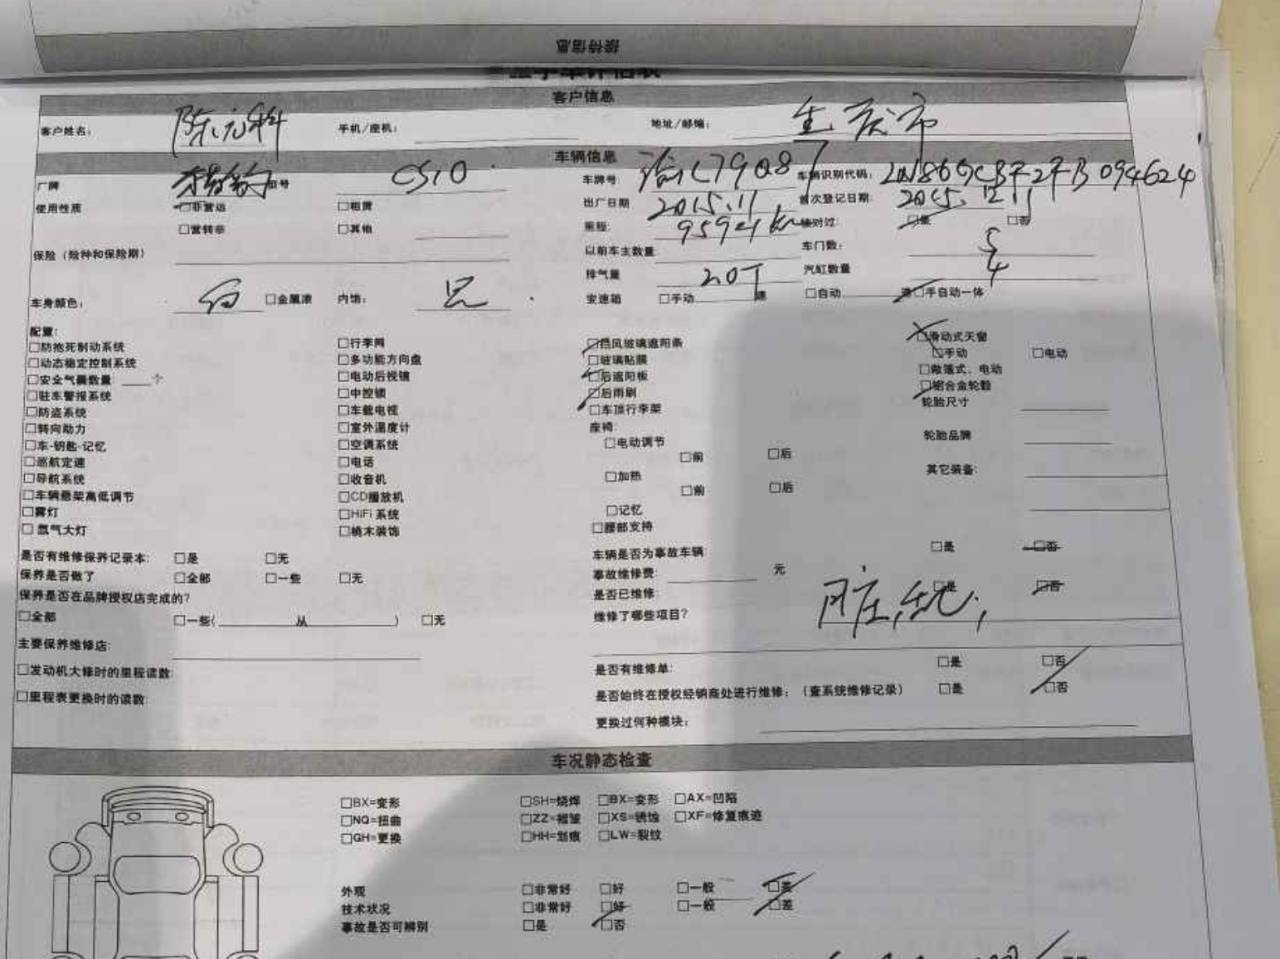 接待信息
客户信息
客户姓名: 手机/座机: 地址/邮编:
车辆信息
厂牌 猎豹 型号 CS10 车牌号: 渝C79Q87 车辆识别代码:
使用性质 □非营运 □租赁 出厂日期 2015.11 首次登记日期: 2015.12.11
□营转非 □其他 里程: 核对过: □是 □否
保险(险种和保险期) 以前车主数量 车门数: 5
排气量 2.0T 汽缸数量 4
车身颜色: 白 □金属漆 内饰: 黑 变速箱 □手动 速 □自动 □手自动一体
配置:
□防抱死制动系统 □行李网 □挡风玻璃遮阳条 □滑动式天窗
□动态稳定控制系统 □多功能方向盘 □玻璃贴膜 □手动 □电动
□安全气囊数量 个 □电动后视镜 □后遮阳板 □敞篷式、电动
□驻车警报系统 □中控锁 □后雨刷 □铝合金轮毂
□防盗系统 □车载电视 □车顶行李架 轮胎尺寸
□转向助力 □室外温度计 座椅:
□车-钥匙-记忆 □空调系统 □电动调节 轮胎品牌
□巡航定速 □电话 □前 □后
□导航系统 □收音机 □加热 其它装备:
□车辆悬架高低调节 □CD播放机 □前 □后
□雾灯 □HiFi系统 □记忆
□氙气大灯 □桃木装饰 □腰部支持
是否有维修保养记录本: □是 □无 车辆是否为事故车辆: □是 □否
保养是否做了 □全部 □一些 □无 事故维修费: 元
保养是否在品牌授权店完成的? 是否已维修: □是 □否
□全部 □一些( 从 ) □无 维修了哪些项目?
主要保养维修店:
□发动机大修时的里程读数: 是否有维修单: □是 □否
□里程表更换时的读数: 是否始终在授权经销商处进行维修:(查系统维修记录) □是 □否
更换过何种模块:
车况静态检查
□BX=变形 □SH=烧焊 □BX=变形 □AX=凹陷
□NQ=扭曲 □ZZ=褶皱 □XS=锈蚀 □XF=修复痕迹
□GH=更换 □HH=划痕 □LW=裂纹
外观 □非常好 □好 □一般 □差
技术状况 □非常好 □好 □一般 □差
事故是否可辨别 □是 □否